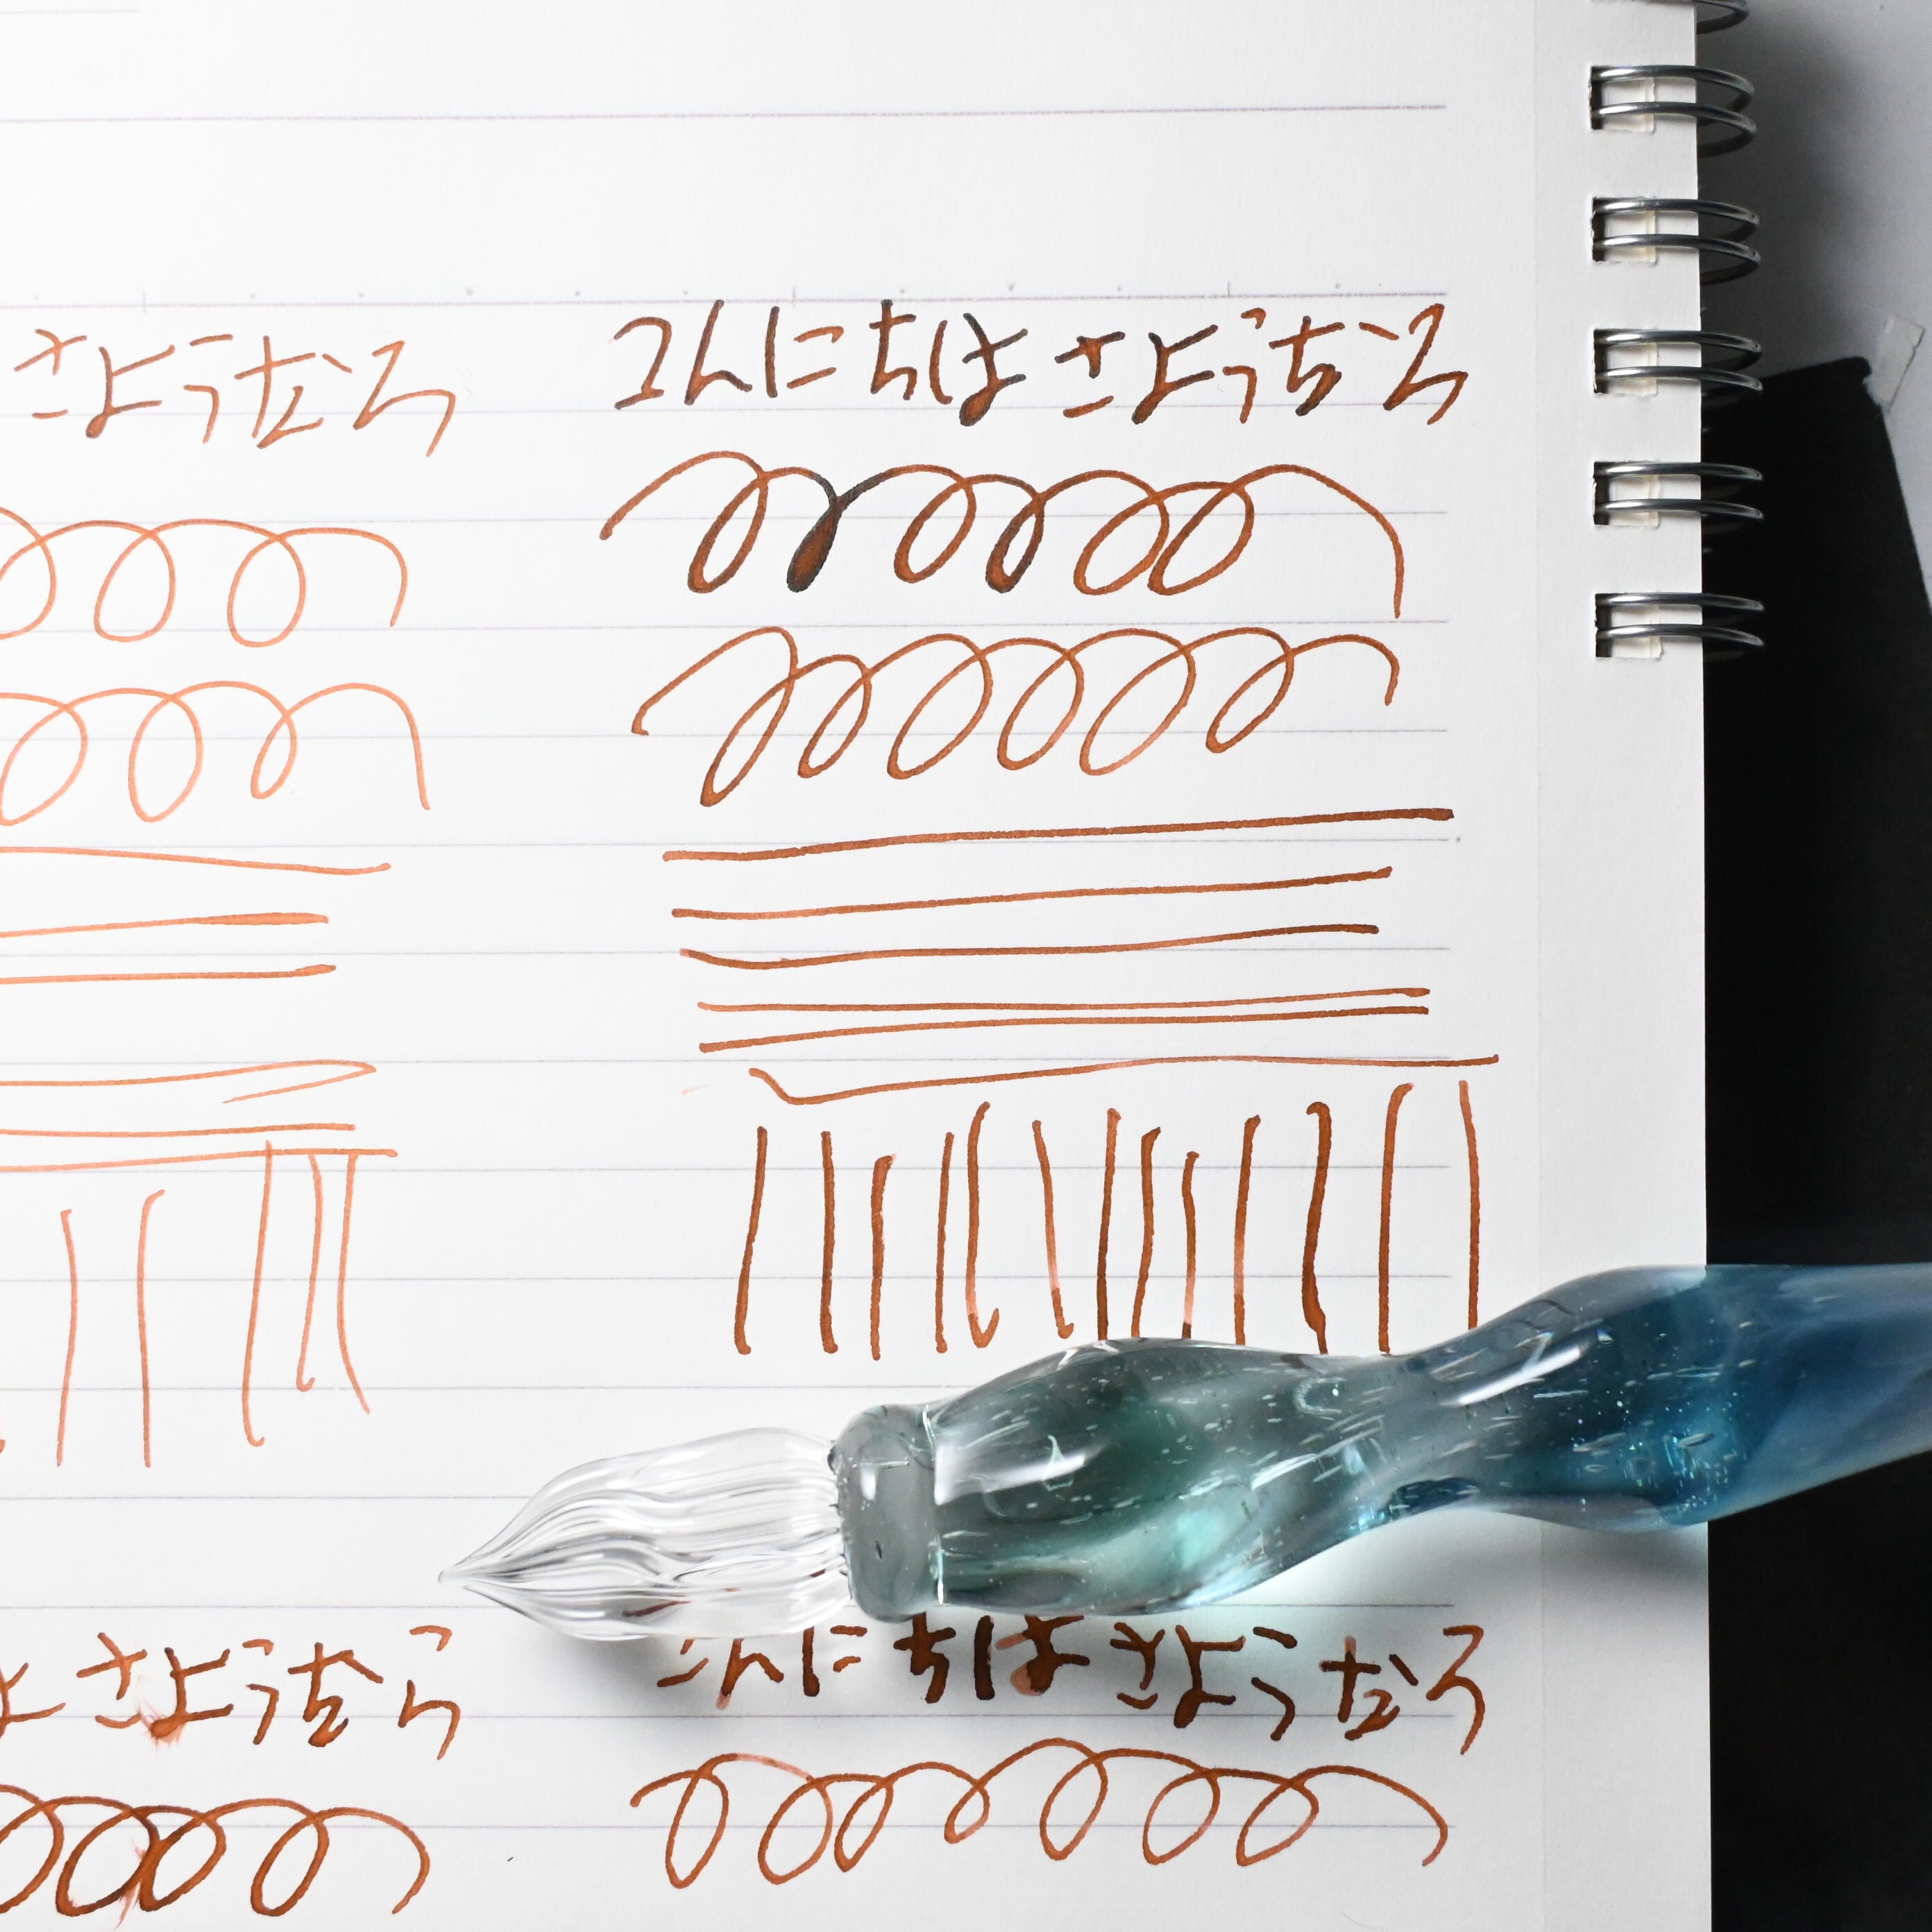 さようなら
こんにちは さようなら
さようなら
こんにちは さようなら